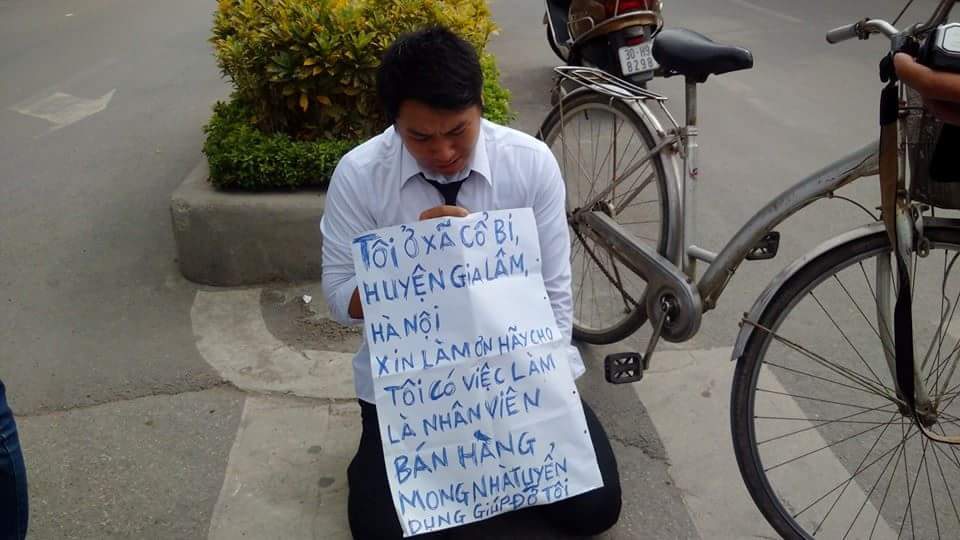 30-H9
8298
TÔI Ở XÃ CỔ BI,
HUYỆN GIA LÂM,
HÀ NỘI
XIN LÀM ƠN HÃY CHO
TÔI CÓ VIỆC LÀM
LÀ NHÂN VIÊN
BÁN HÀNG
MONG NHÀ TUYỂN
DỤNG GIÚP ĐỠ TÔI